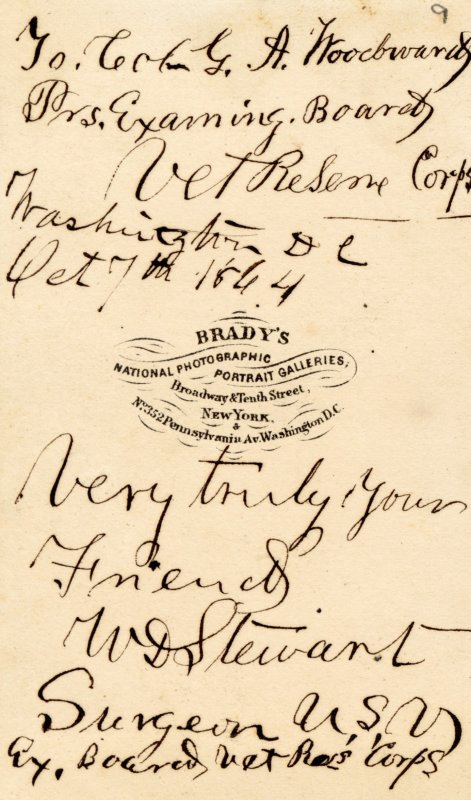 9
To. Col. G. A. Woodward
Prs. Examing. Board
Vet Reserve Corps
Washington D C
Oct 7th 1864
BRADY'S
NATIONAL PHOTOGRAPHIC
PORTRAIT GALLERIES,
Broadway & Tenth Street,
NEW YORK,
&
No. 352 Pennsylvania Av. Washington D.C.
Very truly Your
Friend
W D Stewart
Surgeon U. S. V
Ex. Board, Vet Res Corps